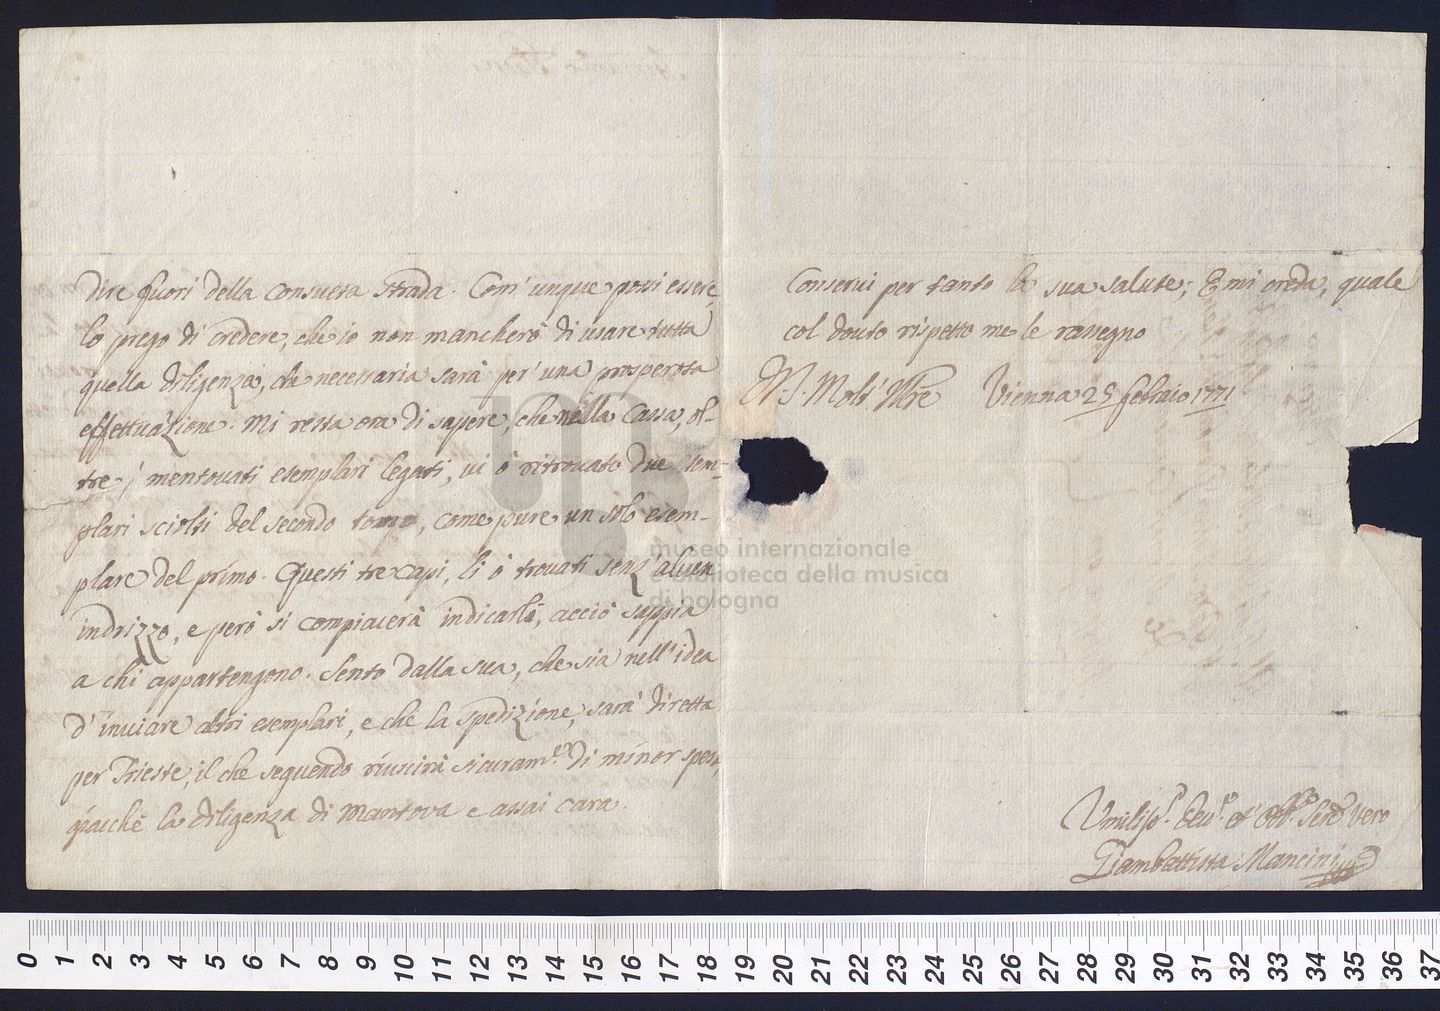 dire fuori della consueta strada. Com'unque possi essere
lo prego di credere, che io non mancherò di usare tutta
quella diligenza, che necessaria sarà per una prosperosa
effettuazione. Mi resta ora di sapere, che nella Cassa, ol-
tre i mentovati esemplari legati, vi ò ritrovato due esem-
plari sciolti del secondo tomo, come pure un solo esem-
plare del primo. Questi tre capi, li ò trovati senz'alcun
indrizzo, e però si compiacerà indicarlè, acciò sappia
a chi appartengono. Sento dalla sua, che sia nell'idea
d'inviare altri esemplari, e che la spedizione, sarà diretta
per Trieste, il che seguendo riuscirà sicuram.te di minor spesa,
giacchè la diligenza di Mantova e assai cara.
Conservi per tanto la sua salute; E mi creda, quale
col douto rispetto me le rassegno
D. V. S. Molto Illre Vienna 25 febraio 1771
Umilis.o Dev.o et Obb.o Serd Vero
Giambattista Mancini
museo internazionale
e biblioteca della musica
di bologna
0 1 2 3 4 5 6 7 8 9 10 11 12 13 14 15 16 17 18 19 20 21 22 23 24 25 26 27 28 29 30 31 32 33 34 35 36 37